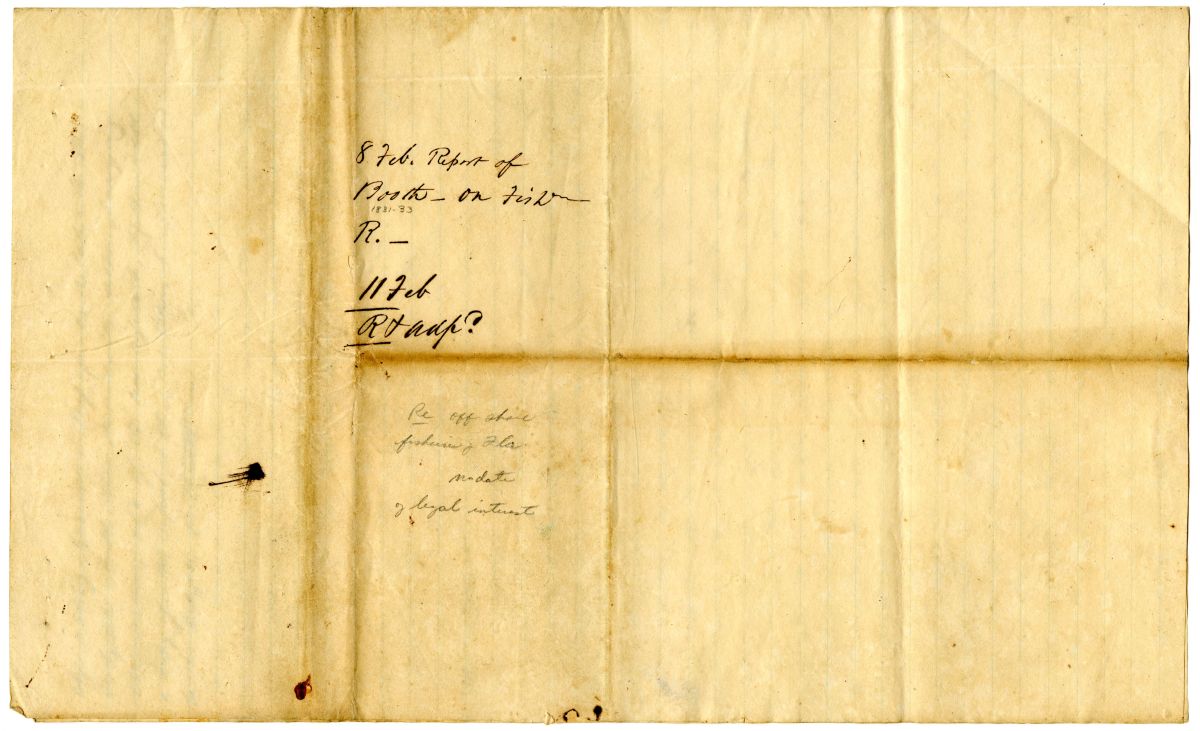 8 Feb. Report of
Booth — on Fish
1831-33
R. —
11 Feb
R & adp?
Re off shore
fisheries of Fla
no date
of legal interest